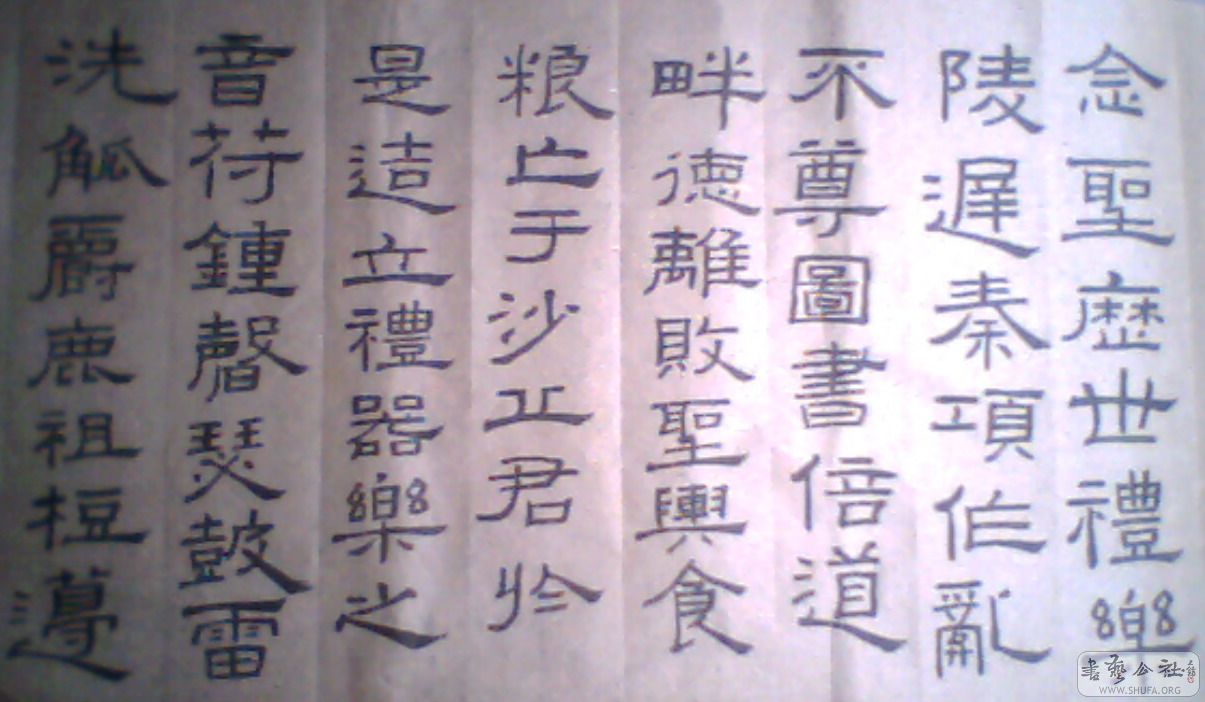 念聖歷世禮樂
陵遲秦項作亂
不尊圖書倍道
畔德離敗聖輿食
粮亡于沙丘君於
是造立禮器樂之
音苻鍾磬瑟鼓雷
洗觚爵鹿祖梪籩
書藝公社
WWW.SHUFA.ORG